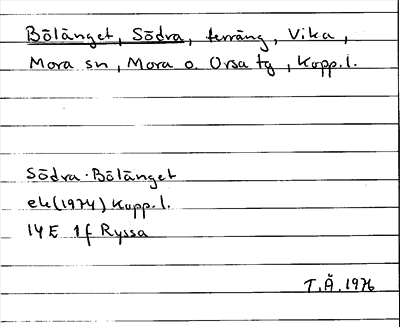 Bölänget, Södra, terräng, Vika,
Mora sn, Mora o. Orsa tg, Kopp.l.
Södra Bölänget
ek(1974) Kopp.l.
14E 1f Ryssa
T.Å. 1976